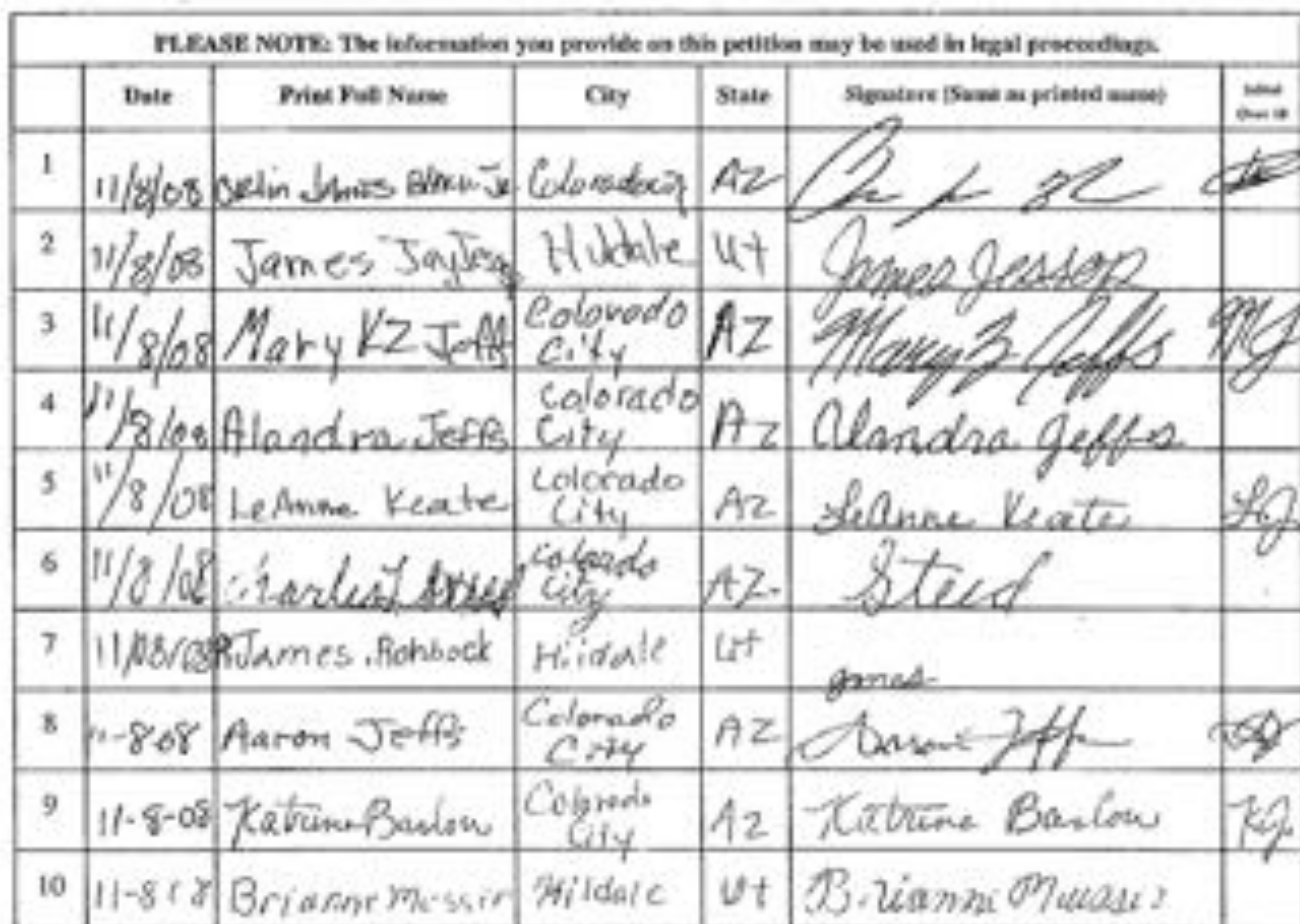 PLEASE NOTE: The information you provide on this petition may be used in legal proceedings.
Date Print Full Name City State Signature (Same as printed name) Initial Over 18
1 11/8/08 James AZ
2 11/8/08 James Jay Hildale Ut James Jessop
3 11/8/08 Mary KZ Jeffs Colorado City AZ Mary Z Jeffs MJ
4 11/8/08 Alandra Jeffs Colorado City AZ Alandra Jeffs
5 11/8/08 LeAnne Keate Colorado City AZ LeAnne Keate
6 11/8/08 Charles Colorado City AZ. Steed
7 11/08/08 James Rohbock Hildale Ut
8 11-8-08 Aaron Jeffs Colorado City AZ Aaron Jeffs
9 11-8-08 Katrina Barlow Colorado City AZ Katrina Barlow KJ
10 Brianne Hildale Ut Brianne